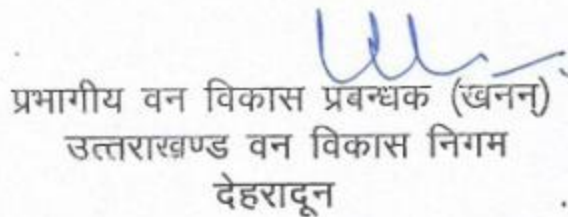 प्रभागीय वन विकास प्रबन्धक (खनन्)
उत्तराखण्ड वन विकास निगम
देहरादून